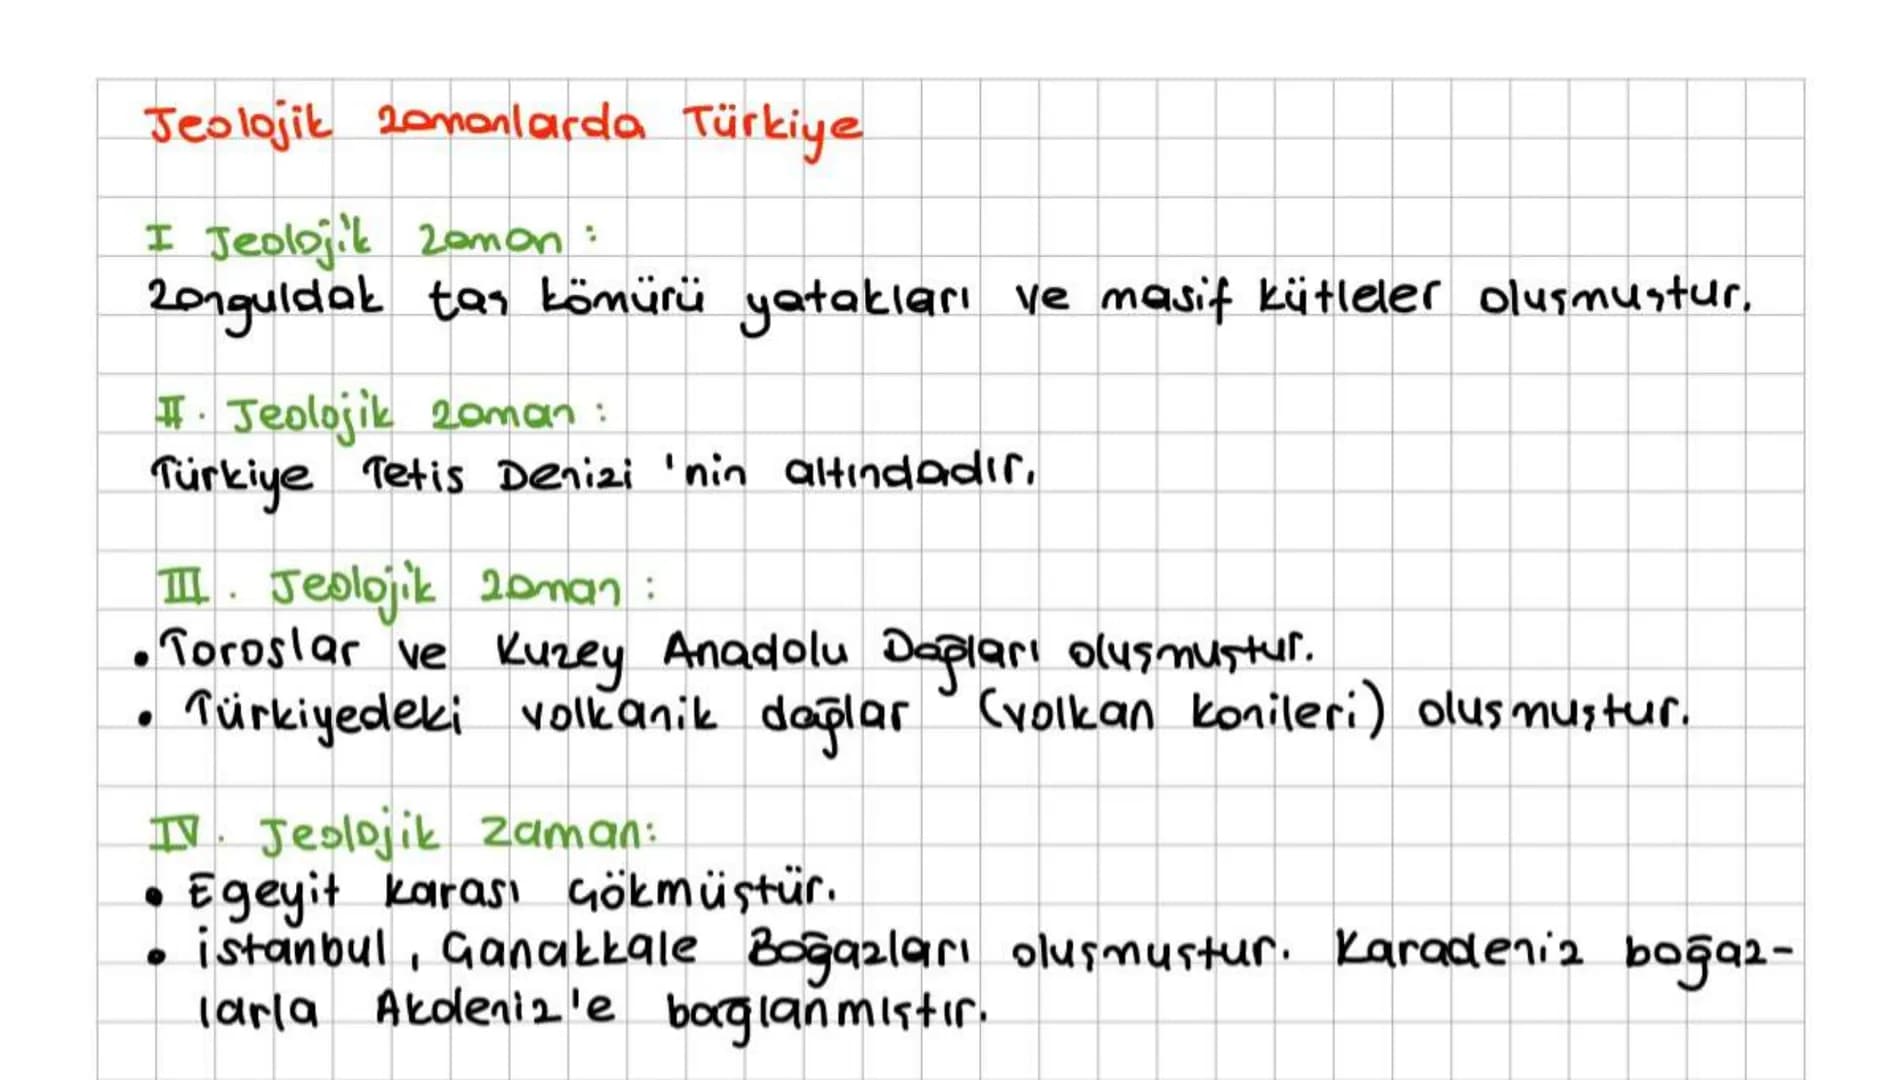 Jeolojik zamanlarda Türkiye
I Jeolojik zaman:
Zonguldak taş kömürü yatakları ve masif kütleler oluşmuştur.
II. Jeolojik zaman:
Türkiye Tetis Denizi'nin altındadır.
III. Jeolojik zaman:
• Toroslar ve Kuzey Anadolu Dağları oluşmuştur.
• Türkiyedeki volkanik dağlar (volkan konileri) oluşmuştur.
IV. Jeolojik zaman:
• Egeyit karası Çökmüştür.
• istanbul, Çanakkale Boğazları oluşmuştur. Karadeniz boğaz-
larla Akdeniz'e bağlanmıştır.